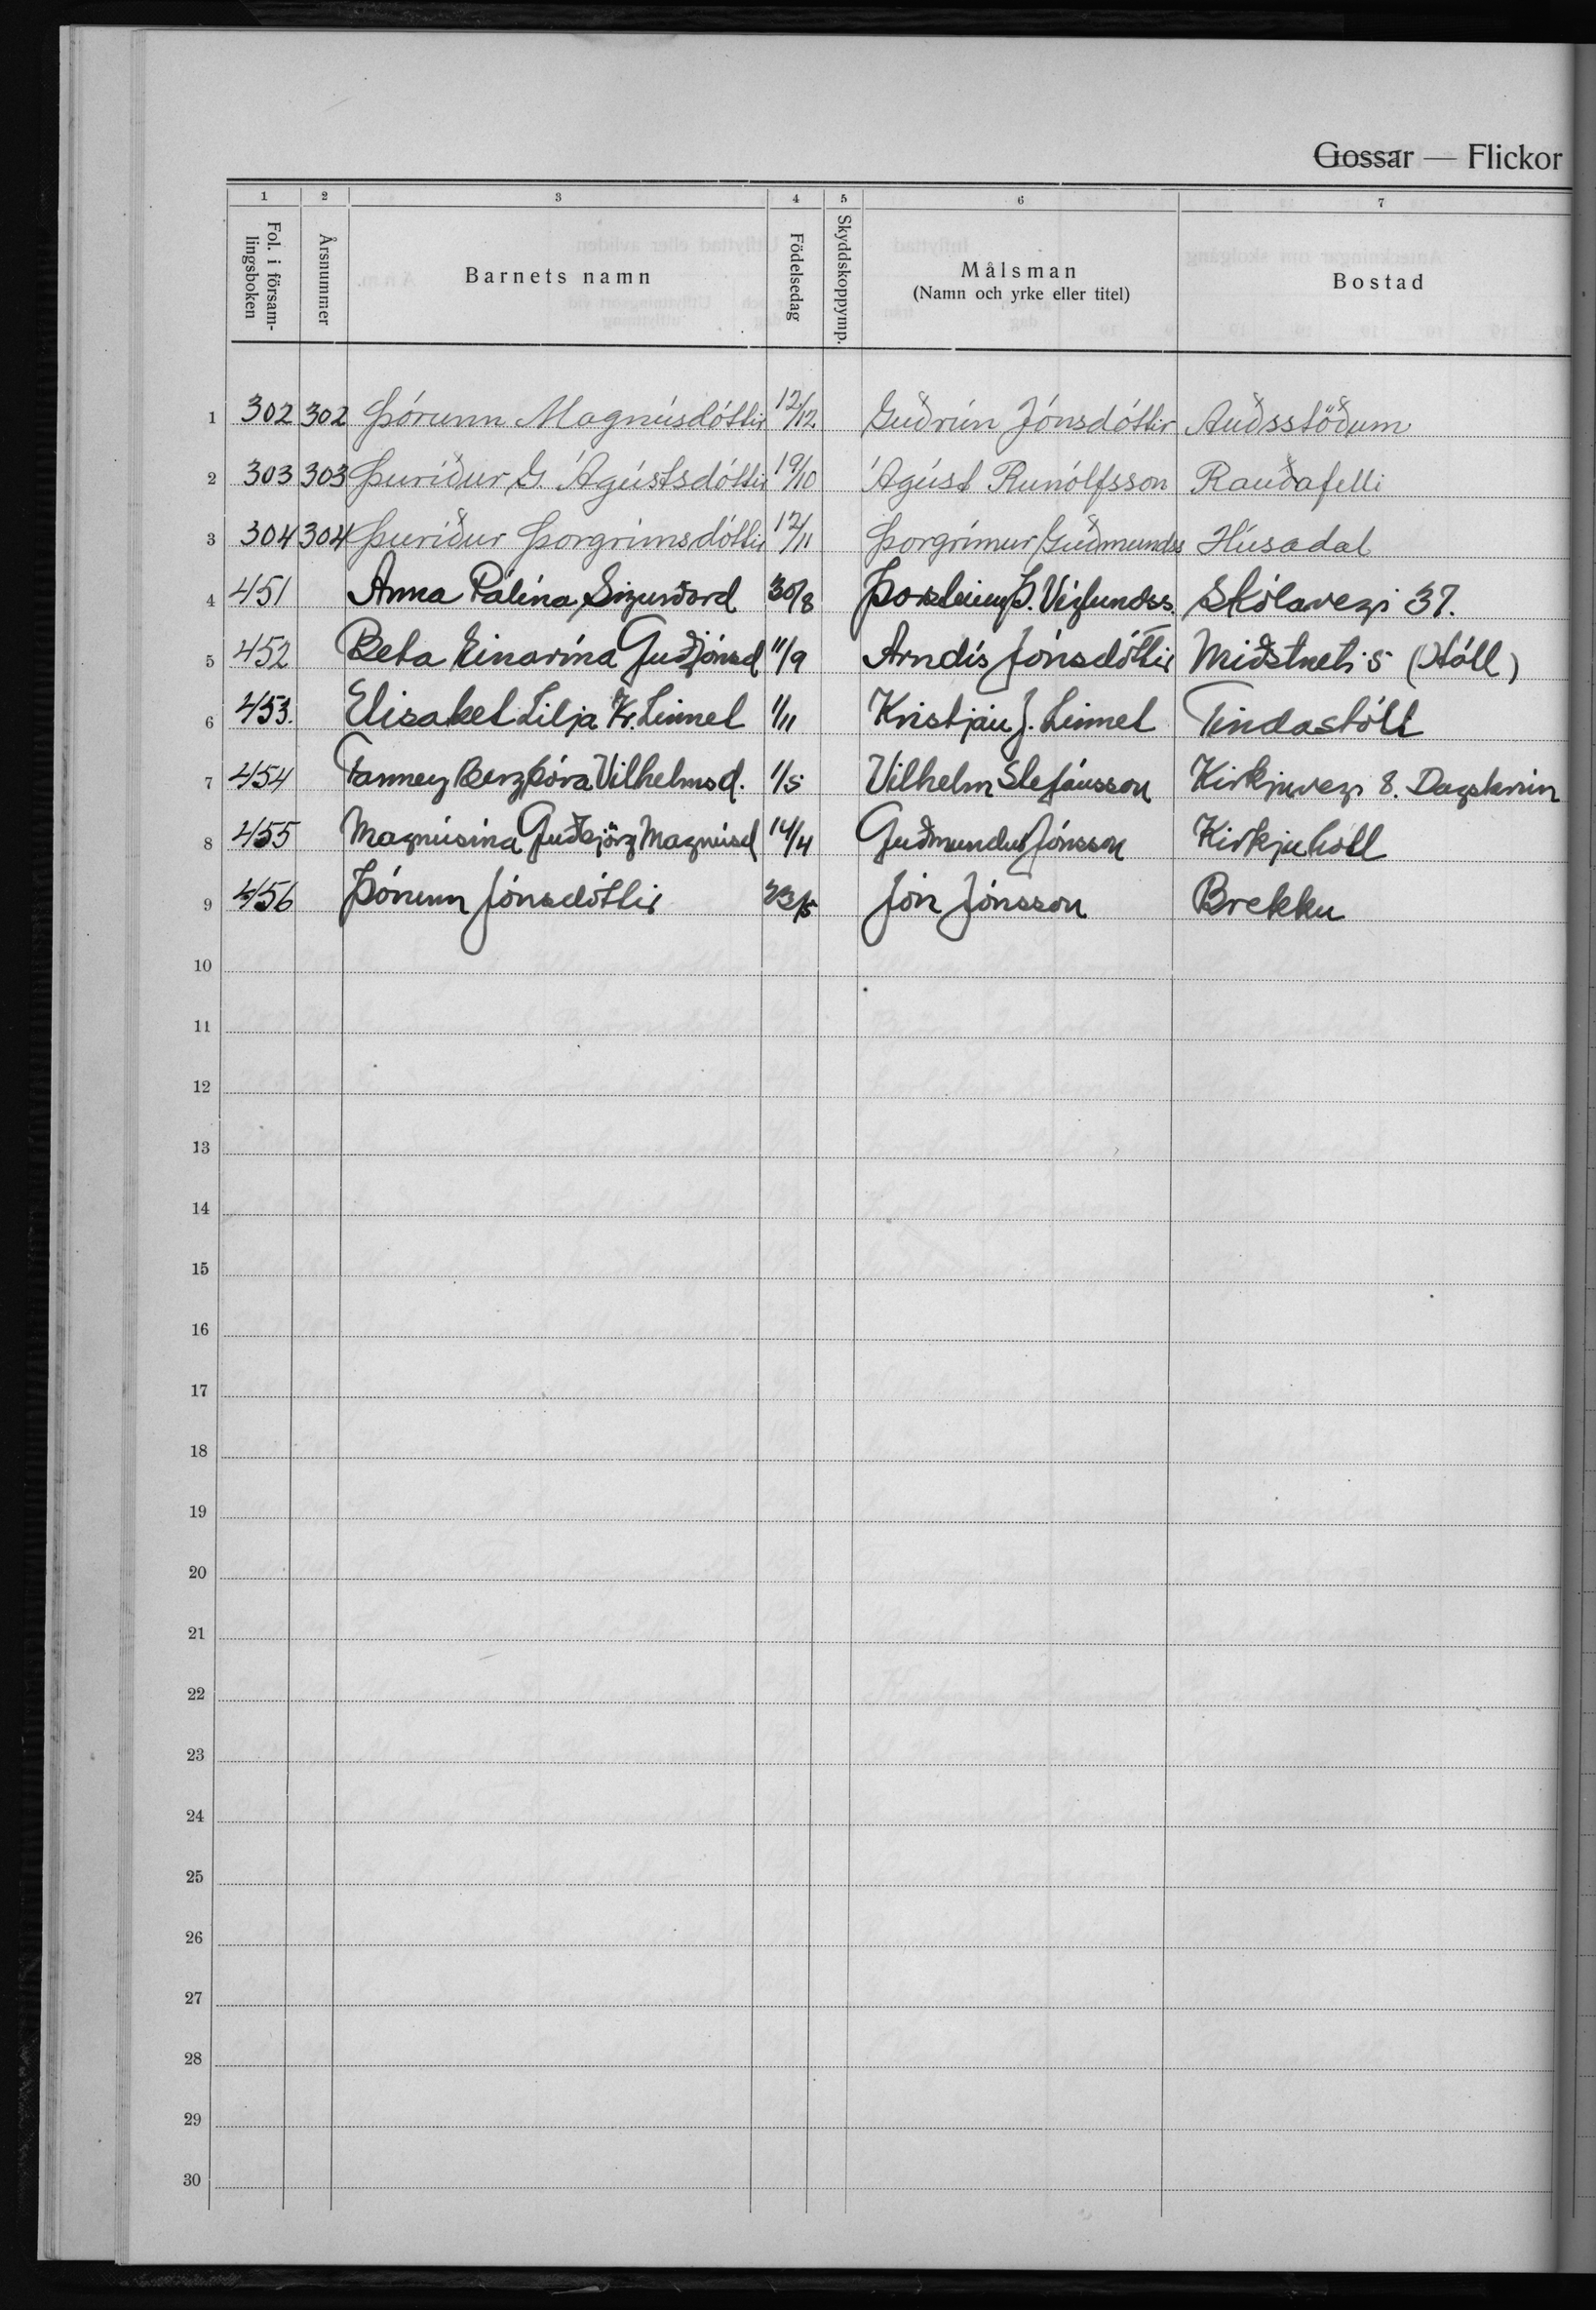 Gossar — Flickor
1 2 3 4 5 6 7
Fol. i försam-
lingsboken
Årsnummer
Barnets namn
Födelsedag
Skyddskoppymp.
Målsman
(Namn och yrke eller titel)
Bostad
1 302 302 Þórunn Magnúsdóttir 12/12 Guðrún Jónsdóttir Auðsstöðum
2 303 303 Þuríður G. Ágústsdóttir 19/10 Ágúst Runólfsson Rauðafelli
3 304 304 Þuríður Þorgrímsdóttir 12/11 Þorgrímur Guðmundss Húsadal
4 451 Anna Pálína Sigurðard 30/8 Þorsteinn Þ. Víglundss. Skólavegi 37.
5 452 Beta Einarína Guðjónsd 11/9 Arndís Jónsdóttir Miðstræti 5 (Hóll)
6 453. Elisabet Lilja Kr. Linnet 1/11 Kristján J. Linnet Tindastóll
7 454 Fanney Bergþóra Vilhelmsd. 1/5 Vilhelm Stefánsson Kirkjuvegi 8. Dagsbrún
8 455 Magnúsína Guðbjörg Magnúsd 14/4 Guðmundur Jónsson Kirkjuhóll
9 456 Þórunn Jónsdóttir 23/5 Jón Jónsson Brekku
10
11
12
13
14
15
16
17
18
19
20
21
22
23
24
25
26
27
28
29
30